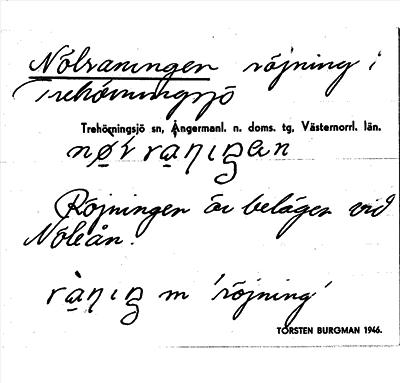 Nölraningen röjning i
Trehörningsjö
Trehörningsjö sn, Ångermanl. n. doms. tg, Västernorrl. län.
Röjningen är belägen vid
Nöleån.
m 'röjning'
TORSTEN BURGMAN 1946.